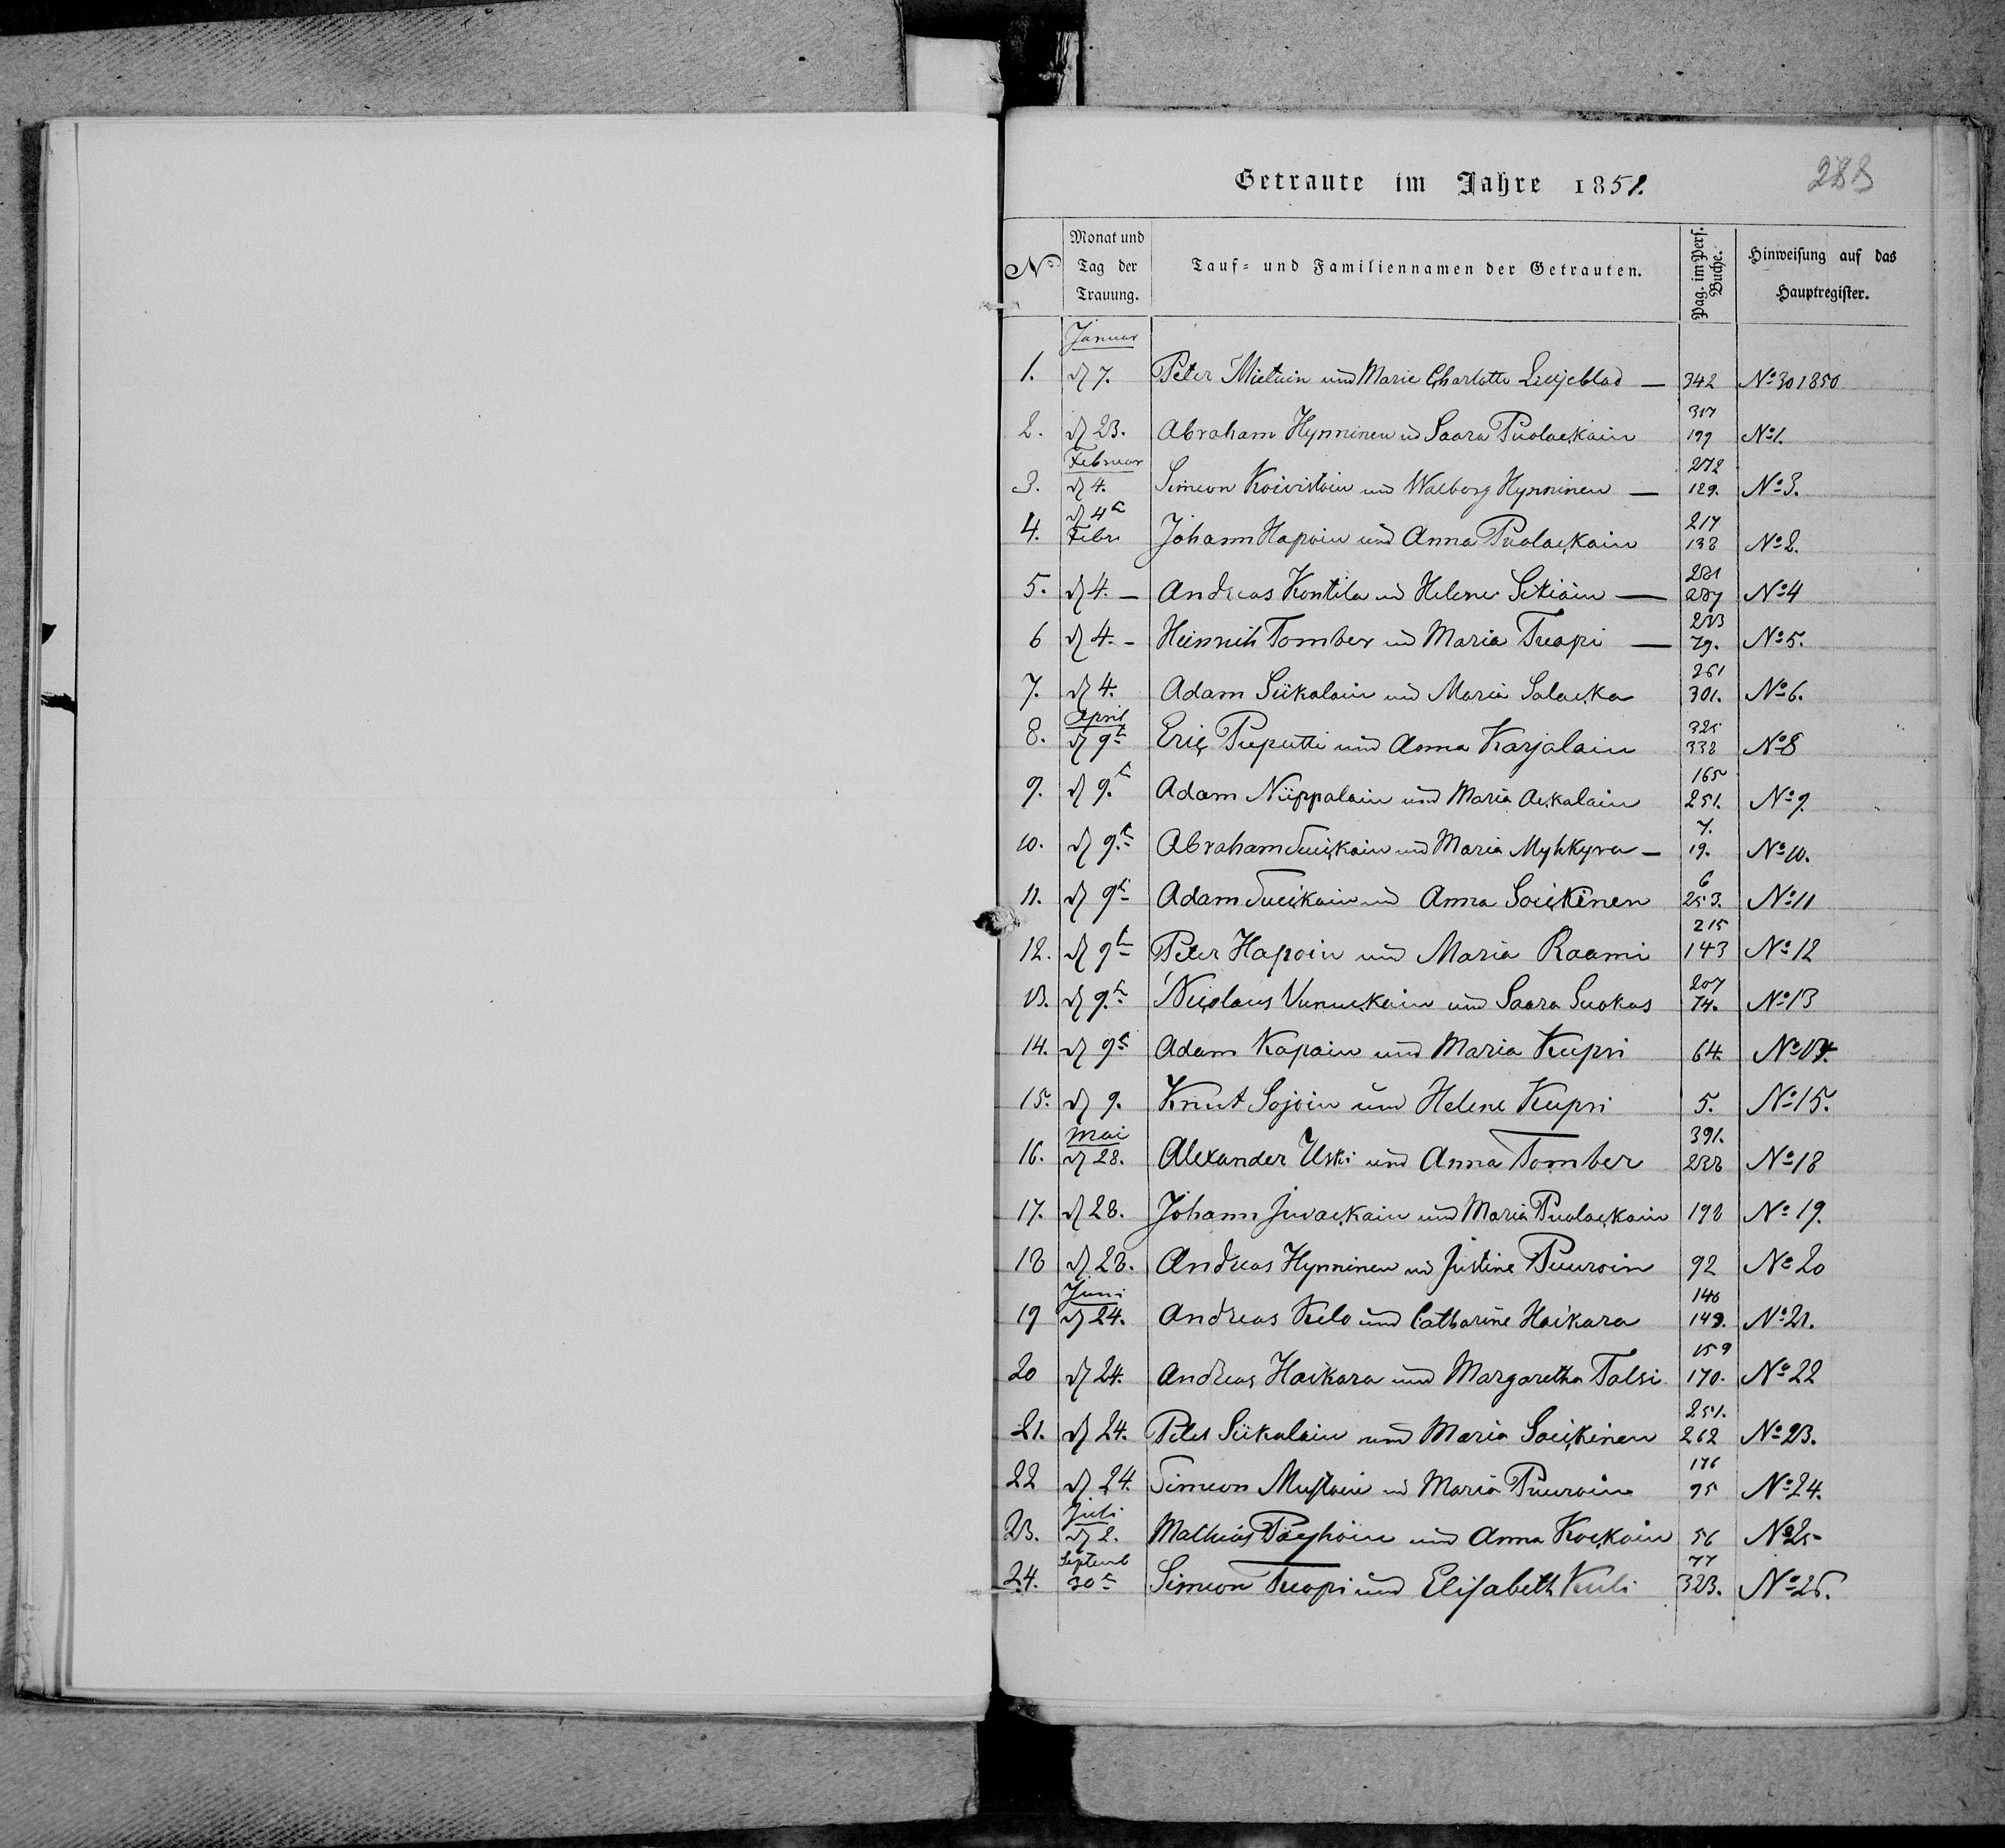 288
Getraute im Jahre 1851.
No Monat und Tag der Trauung. Tauf- und Familiennamen der Getrauten. Pag. im Pers. Buche. Hinweisung auf das Hauptregister.
Januar
1. d 7. Peter Mietuin und Marie Charlotte Lilljeblad — 342 No 30 1850
317
2. d 23. Abraham Hynninen u Saara Puolackain 199 No 1.
Februar 272
3. d 4. Simeon Koivistoin und Walborg Hynninen — 129. No 3.
d 4t 217
4. Febr Johann Hapoin und Anna Puolackain 138 No 2.
281
5. d 4. — Andreas Kontila u Helene Sikiäin — 237 No 4
233
6 d 4. — Heinrich Tomber u Maria Tuapi — 79. No 5.
261
7. d 4. Adam Siikalain und Maria Salacka 301. No 6.
April 325
8. d 9t Eric Puputti und Anna Karjalain 338 No 8
165
9. d 9.t Adam Niippalain und Maria Ackalain 251. No 9.
7.
10. d 9.t Abraham Suickain und Maria Myhkyra — 19. No 10.
6
11. d 9t Adam Suickain und Anna Soickinen 253. No 11
215
12. d 9t Peter Hapoin und Maria Raami 143 No 12
207
13. d 9.t Nicolaus Vunuckain und Saara Suokas 74. No 13
14. d 9t Adam Kapain und Maria Kupri 64. No 14.
15. d 9. Knut Sojoin und Helene Kupri 5. No 15.
Mai 391.
16. d 28. Alexander Uski und Anna Tomber 238 No 18
17. d 28. Johann Juvackain und Maria Puolackain 198 No 19.
18 d 28. Andreas Hynninen u Justine Puuroin 92 No 20
Juni 146
19 d 24. Andreas Kelo und Catharine Haikara 149. No 21.
159
20 d 24. Andreas Haikara und Margaretha Talsi 170. No 22
251.
21. d 24. Peter Siikalain und Maria Soickinen 262 No 23.
176
22 d 24. Simeon Mustain u Maria Puuroin 95 No 24.
Juli
23. d 2. Mathias Päyhöin und Anna Kockoin 56 No 25
Septemb 77
24. 30t Simeon Tuapi und Elisabeth Kuli 323. No 26.